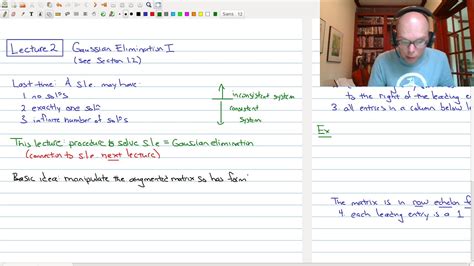 Sans 12
Lecture 2 Gaussian Elimination I
(see Section 1.2)
Last time: A s.l.e. may have
1 no solns
2 exactly one soln
3 infinite number of solns
inconsistent system
consistent system
This lecture: procedure to solve s.l.e = Gaussian elimination
(connection to s.l.e. next lecture)
Basic idea: manipulate the augmented matrix so has form
to the right of the leading e
3. all entries in a column below l
Ex
The matrix is in row echelon f
4. each leading entry is a 1